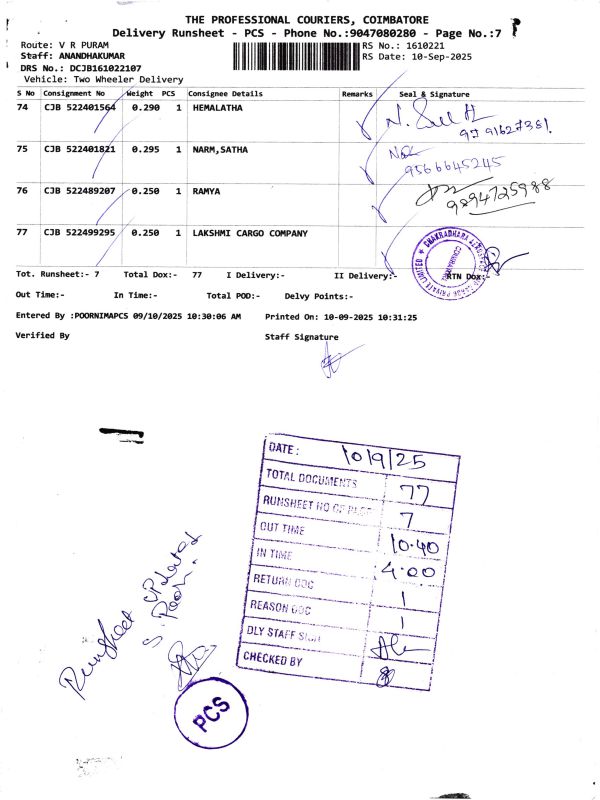 THE PROFESSIONAL COURIERS, COIMBATORE
Delivery Runsheet - PCS - Phone No.:9047080280 - Page No.:7
Route: V R PURAM
RS No.: 1610221
Staff: ANANDHAKUMAR
RS Date: 10-Sep-2025
DRS No.: DCJB161022107
Vehicle: Two Wheeler Delivery
S No Consignment No Weight PCS Consignee Details Remarks Seal & Signature
74 CJB 522401564 0.290 1 HEMALATHA
75 CJB 522401821 0.295 1 NARM,SATHA
9566645245
76 CJB 522489207 0.250 1 RAMYA
9894725988
77 CJB 522499295 0.250 1 LAKSHMI CARGO COMPANY
Tot. Runsheet:- 7 Total Dox:- 77 I Delivery:- II Delivery:- RTN Dox:-
Out Time:- In Time:- Total POD:- Delvy Points:-
Entered By :POORNIMAPCS 09/10/2025 10:30:06 AM Printed On: 10-09-2025 10:31:25
Verified By Staff Signature
DATE: 10/9/25
TOTAL DOCUMENTS 77
RUNSHEET NO OF 7
OUT TIME 10.40
IN TIME 4.00
RETURN DOC 1
REASON DOC 1
DLY STAFF SIGN
CHECKED BY
Runsheet updated
PCS